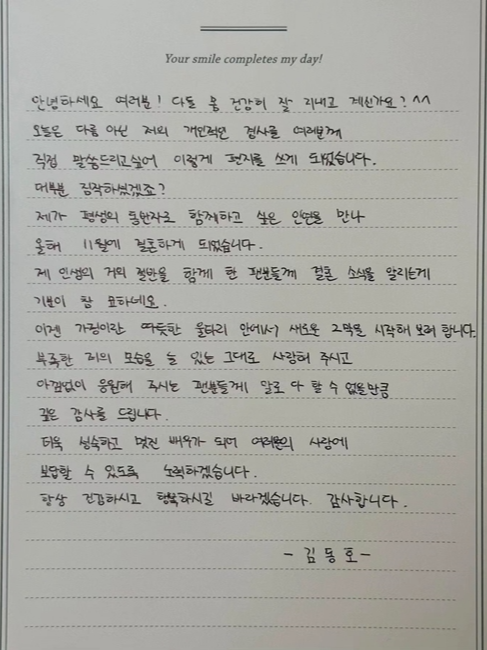 Your smile completes my day!
안녕하세요 여러분! 다들 몸 건강히 잘 지내고 계신가요? ^^
오늘은 다름 아닌 저의 개인적인 경사를 여러분께
직접 말씀드리고 싶어 이렇게 편지를 쓰게 되었습니다.
대부분 짐작하셨겠죠?
제가 평생의 동반자로 함께하고 싶은 인연을 만나
올해 11월에 결혼하게 되었습니다.
제 인생의 거의 절반을 함께 한 팬분들께 결혼 소식을 알리는게
기분이 참 묘하네요.
이젠 가정이란 따듯한 울타리 안에서 새로운 2막을 시작해보려 합니다.
부족한 저의 모습을 늘 있는 그대로 사랑해 주시고
아낌없이 응원해 주시는 팬분들께 말로 다 할 수 없을만큼
깊은 감사를 드립니다.
더욱 성숙하고 멋진 배우가 되어 여러분의 사랑에
보답할 수 있도록 노력하겠습니다.
항상 건강하시고 행복하시길 바라겠습니다. 감사합니다.
- 김동호 -